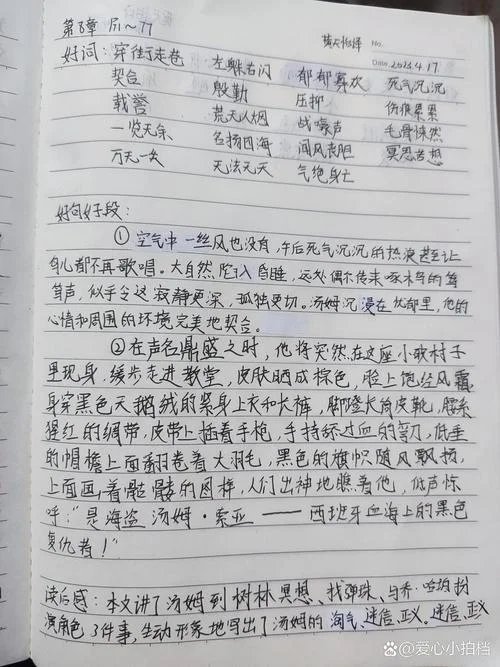 第8章 71~77
No.
好词：穿街走巷 左躲右闪 郁郁寡欢 死气沉沉
Date. 2023.4.17.
契合 殷勤 压抑 伤痕累累
载誉 荒无人烟 战嚎声 毛骨悚然
一览无余 名扬四海 闻风丧胆 冥思苦想
万无一失 无法无天 气绝身亡
好句好段：
① 空气中一丝风也没有，午后死气沉沉的热浪甚至让
鸟儿都不再歌唱。大自然陷入昏睡，远处偶尔传来啄木鸟的笃
笃声，似乎令这寂静更深，孤独更切。汤姆沉浸在忧郁里，他的
心情和周围的环境完美地契合。
②在声名鼎盛之时，他将突然在这座小歌村子
里现身，缓步走进教堂，皮肤晒成棕色，脸上饱经风霜
身穿黑色天鹅绒的紧身上衣和长裤，脚蹬长筒皮靴，腰系
猩红的绸带，皮带上插着手枪，手持沾过血的弯刀，低垂
的帽檐上面翻卷着大羽毛，黑色的旗帜随风飘扬，
上面画着骷髅的图样，人们出神地瞧着他，低声惊
呼：“是海盗汤姆·索亚——西班牙血海上的黑色
复仇者！”
读后感：本文讲了汤姆到树林冥想、找弹珠、与乔·哈珀扮
演角色3件事，生动形象地写出了汤姆的淘气、迷信、正义。迷信、正义
@爱心小拍档